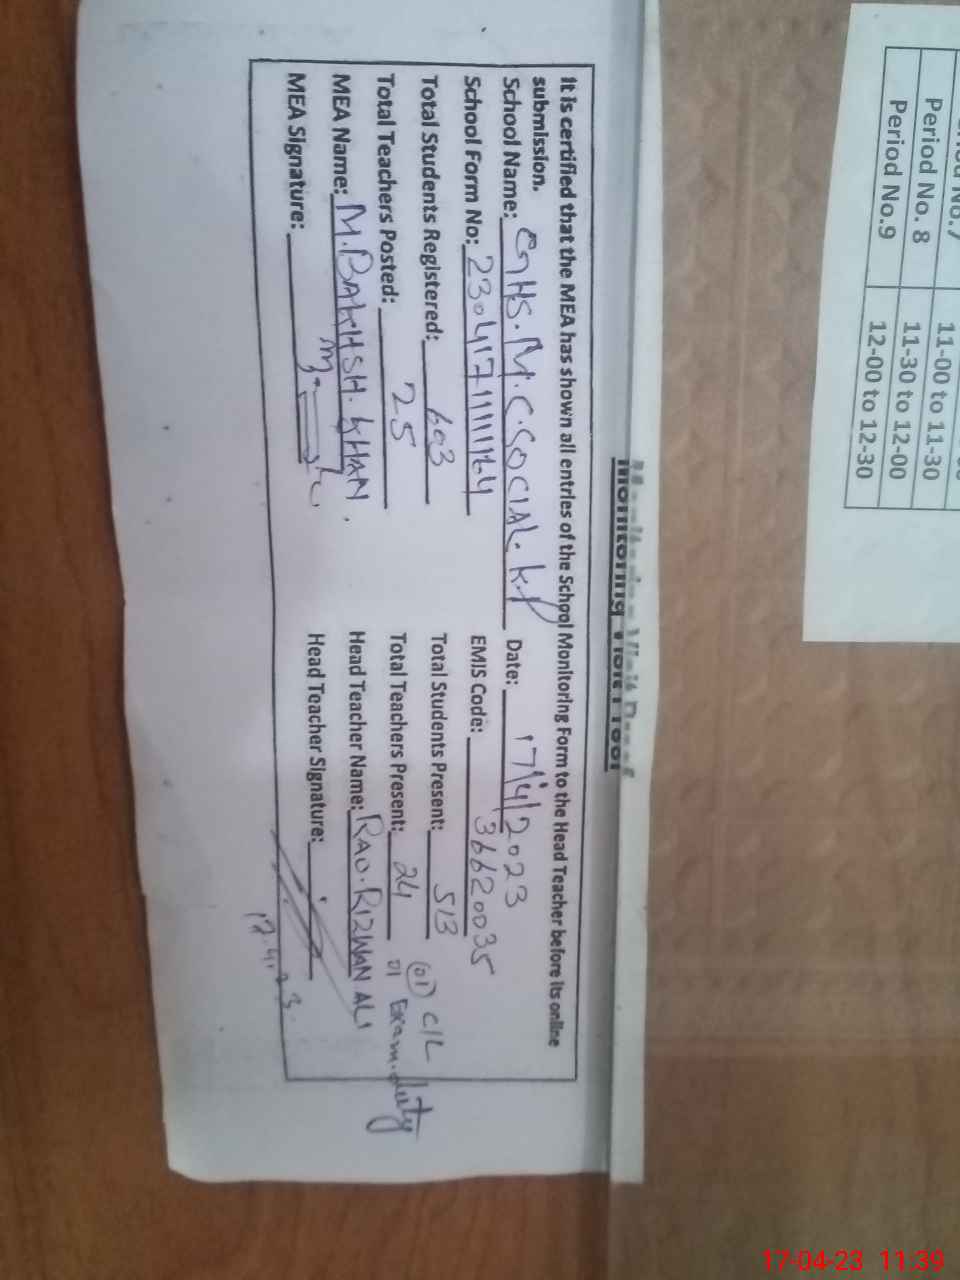 Period No. 8 11-30 to 12-00
Period No.9 12-00 to 12-30
11-00 to 11-30
Monitoring Visit Proof
It is certified that the MEA has shown all entries of the School Monitoring Form to the Head Teacher before its online
submission.
School Name: GHS. M.C. SOCIAL. K.P Date: 17/4/2023
School Form No: EMIS Code: 36620035
Total Students Registered: 603 Total Students Present: 513
Total Teachers Posted: 25 Total Teachers Present: 24 (01) C/L
01 Exam. duty
MEA Name: M. BAKHSH. KHAN. Head Teacher Name: RAO. RIZWAN ALI
MEA Signature: Head Teacher Signature:
17.4.23
17-04-23 11:39